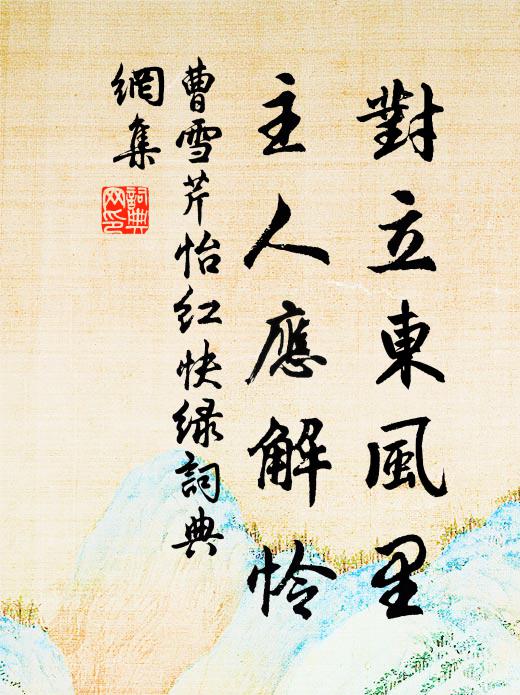 對立東風里
主人應解怜
曹雪芹怡紅快绿詞典
網集
詞典
网印